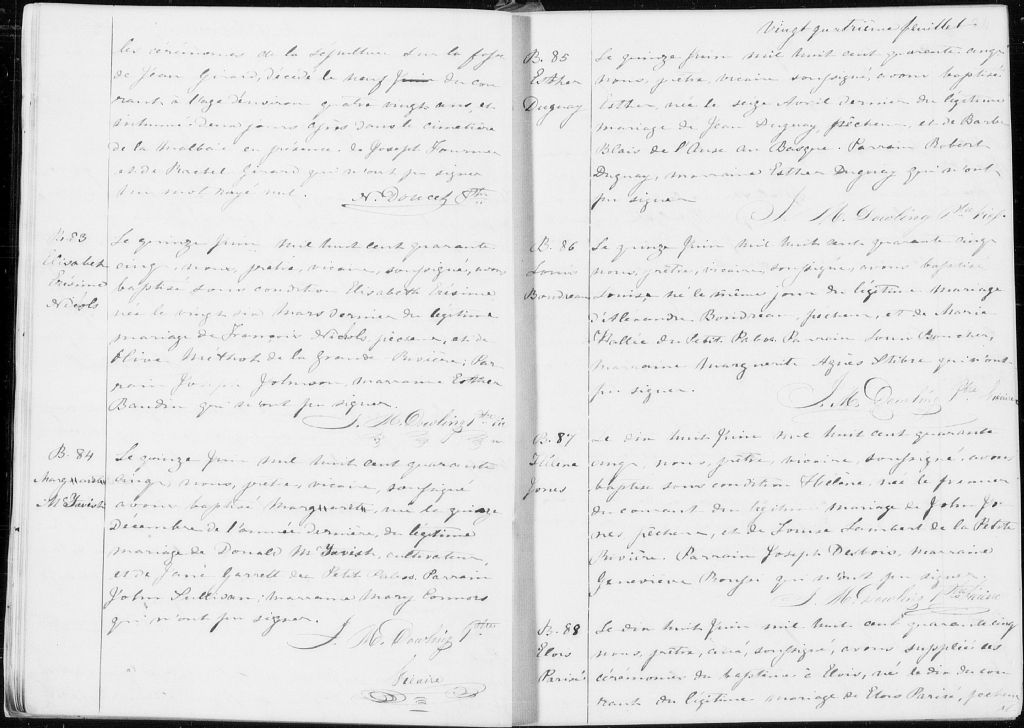 les cérémonies de la sépulture sur la fosse
de Jean Girard, décédé le neuf Juin du cou
rant à l'age d'environ quatre vingt ans, et
inhumé deux jours après dans le cimetière
de la Malbaie en présence de Joseph Fournier
et de Rachel Girard qui n'ont pu signer
un mot rayé nul.
N. Doucet Ptre
B. 83
Elisabeth
Erésime
Nicols
Le quinze Juin mil huit cent quarante
cinq, nous, prêtre, vicaire, soussigné, avons
baptisé sous condition Elisabeth Erésime
née le vingt six Mars dernier du légitime
mariage de François Nicols pêcheur, et de
Olive Methot de la Grande Rivière; Par
rain Joseph Johnson, marraine Esther
Baudin qui n'ont pu signer.
J. M. Dowling Ptre Vic
B. 84
Marguerite
McTavish
Le quinze Juin mil huit cent quarante
cinq nous, prêtre, vicaire, soussigné
avons baptisé Marguerite, née le quinze
Décembre de l'année dernière, du légitime
mariage de Donald McTavish, cultivateur,
et de Jane Garrett du Petit Pabos. Parrain
John Sullivan; marraine Mary Connors
qui n'ont pu signer.
J. M. Dowling Ptre
Vicaire
Vingt quatrième feuillet
B. 85
Esther
Duguay
Le quinze Juin mil huit cent quarante cinq
nous, prêtre, vicaire soussigné, avons baptisé
Esther, née le seize Avril dernier du légitime
mariage de Jean Duguay, pêcheur, et de Barbe
Blais de l'Anse au Basque. Parrain Robert
Duguay, marraine Esther Duguay qui n'ont
pu signer
J. M. Dowling Ptre Vic.
B. 86
Louis
Boudreau
Le quinze Juin mil huit cent quarante cinq
nous, prêtre, vicaire soussigné, avons baptisé
Louise né le même jour du légitime mariage
d'Alexandre Boudreau, pêcheur, et de Marie
Hallié du Petit Pabos. Parrain Louis Boucher,
marraine Marguerite Agnès qui n'ont
pu signer.
J. M. Dowling Ptre Vicaire
B. 87
Hélène
Jones
Le dix huit Juin mil huit cent quarante
cinq, nous, prêtre, vicaire, soussigné avons
baptisé sous condition Hélène, née le premier
du courant du légitime mariage de John Jo
nes pêcheur, et de Louise Lambert de la Petite
Rivière. Parrain Joseph Desbois, marraine
Geneviève qui n'ont pu signer.
J. M. Dowling Ptre Vicaire
B. 88
Elois
Parisé
Le dix huit Juin mil huit cent quarante cinq
nous, prêtre, curé, soussigné, avons supplié les
cérémonies du baptême à Elois, né le dix du cou
rant du légitime mariage de Elois Parisé, pêcheur